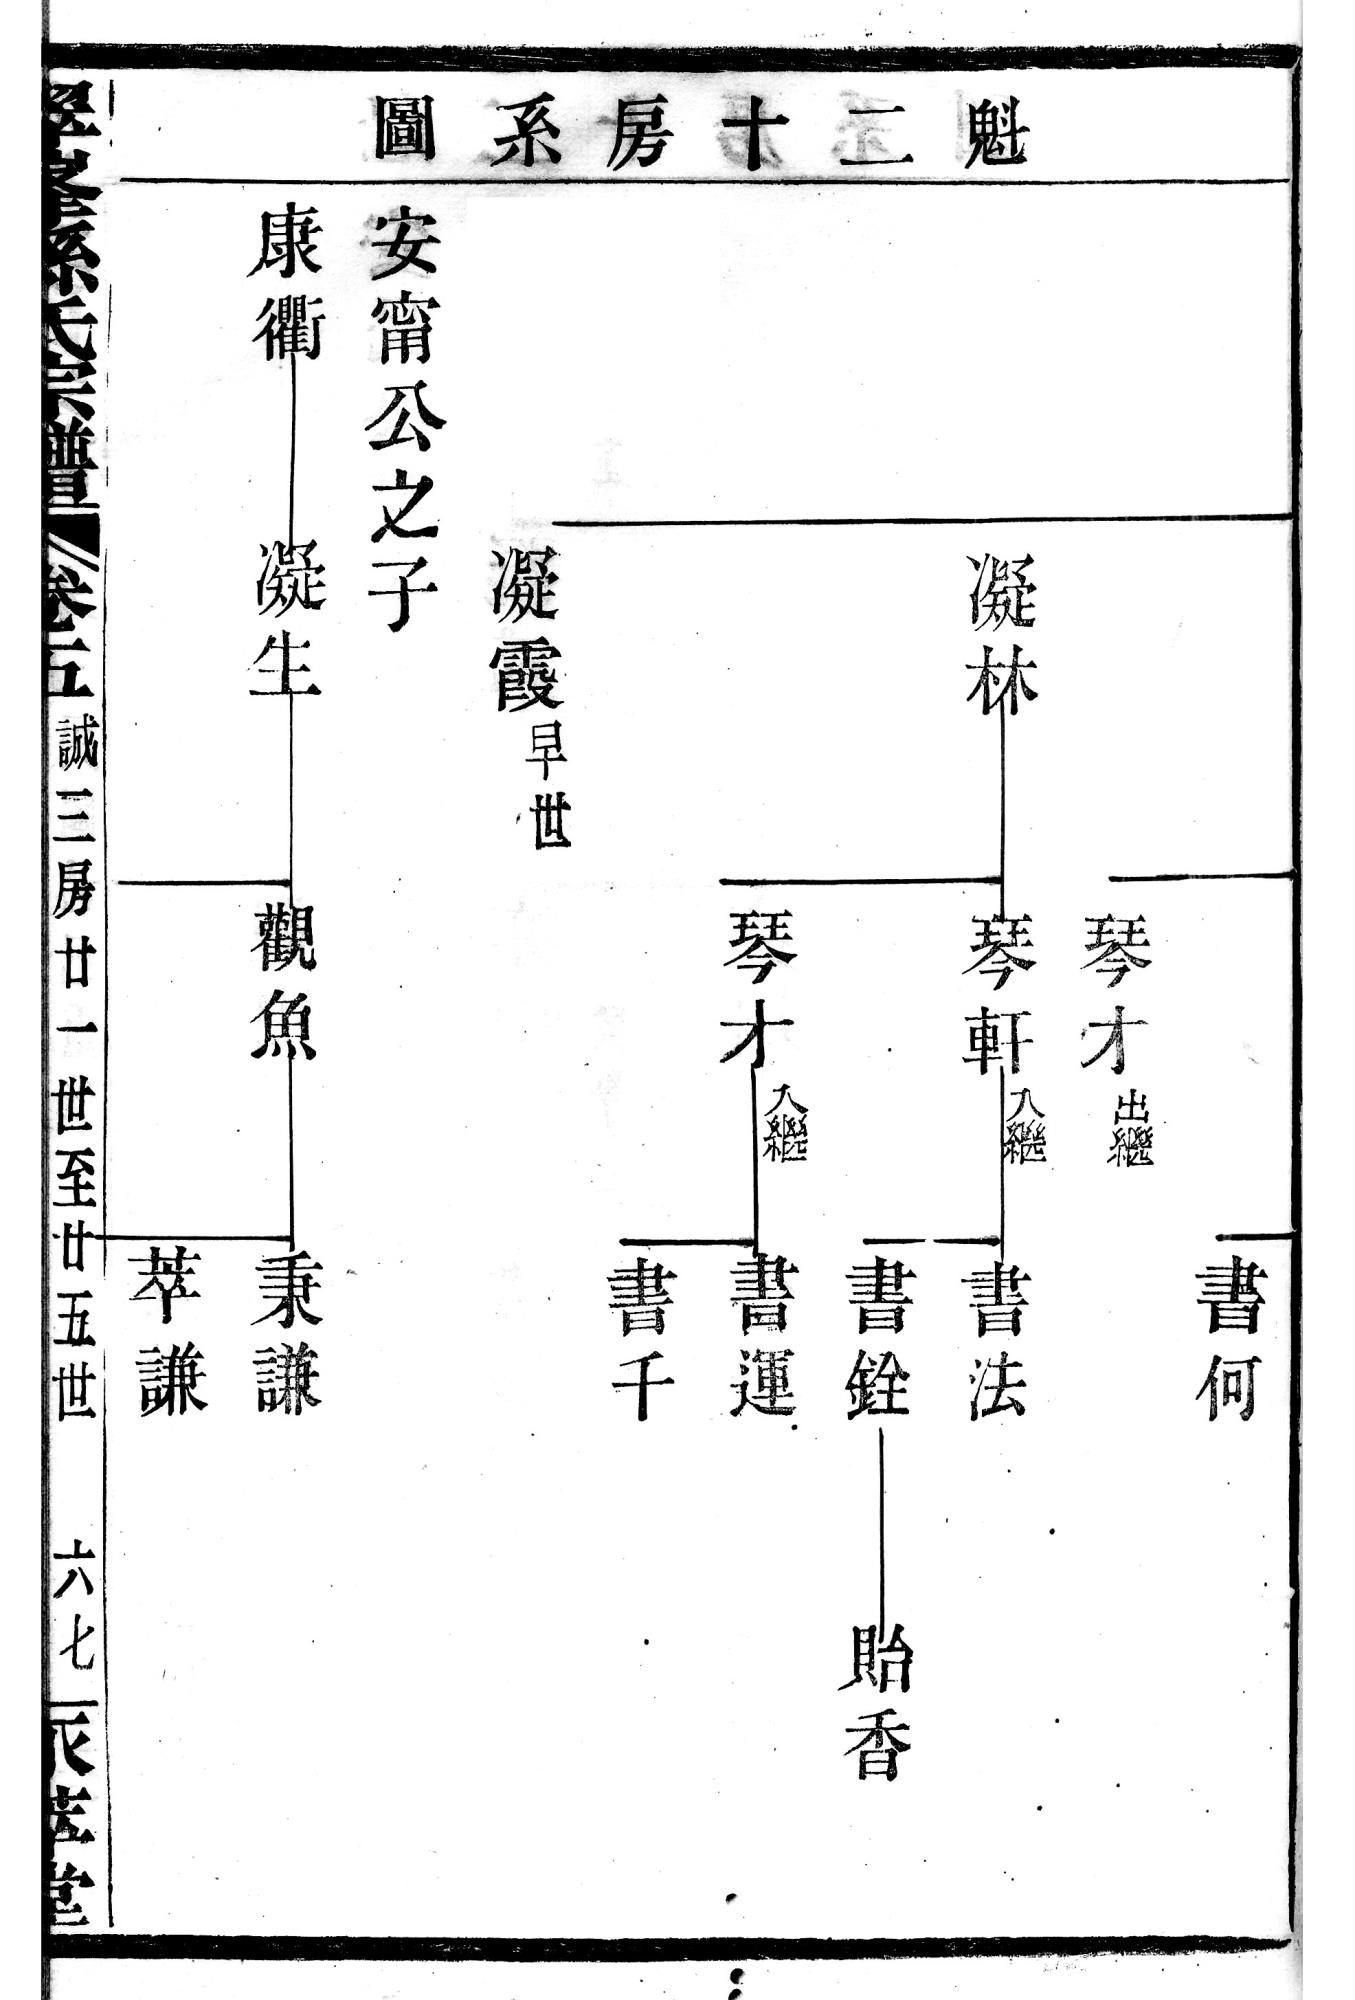 魁二十房系圖
書何
琴才出繼
凝林
琴軒入繼
書法
書銓
貽香
琴才入繼
書運
書千
凝霞早世
安甯公之子
康衢
凝生
觀魚
秉謙
萃謙
孫氏宗譜
卷五
誠三房廿一世至廿五世
六七
堂